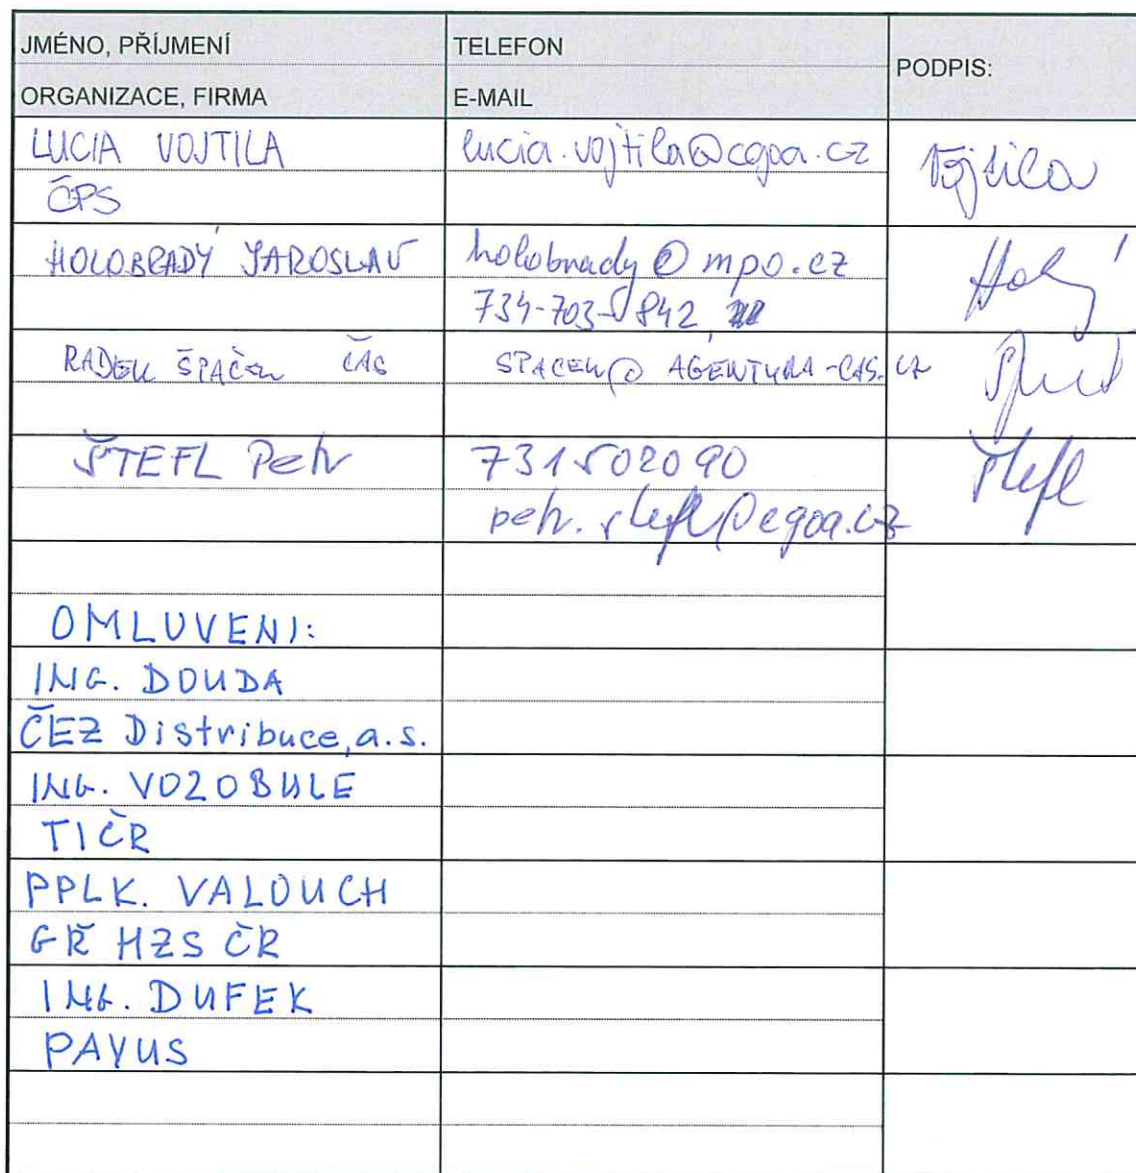 JMÉNO, PŘÍJMENÍ TELEFON
PODPIS:
ORGANIZACE, FIRMA E-MAIL
LUCIA VOJTILA lucia.vojtila@cgoa.cz Vojtila
ČPS
HOLOBRADÝ JAROSLAV holobrady@mpo.cz
734-703-842
RADEK ŠPAČEK ČAS SPACEK@AGENTURA-CAS.CZ
ŠTEFL Petr 731502090 Štefl
petr.stefl@cgoa.cz
OMLUVENI:
ING. DOUDA
ČEZ Distribuce, a.s.
ING. VOZOBULE
TIČR
PPLK. VALOUCH
GŘ HZS ČR
ING. DUFEK
PAYUS